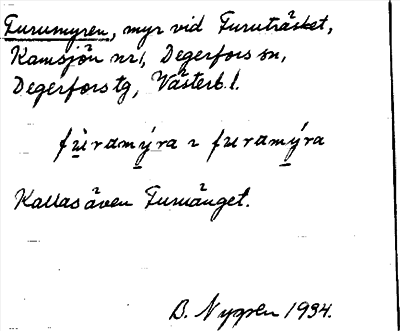 Furumyren, myr vid Furuträsket,
Kamsjön nr 1, Degerfors sn,
Degerfors tg, Västerb. l.
fu̱ramý̱ra ɿ furamý̱ra
Kallas även Furuänget.
B. Nygren 1934.